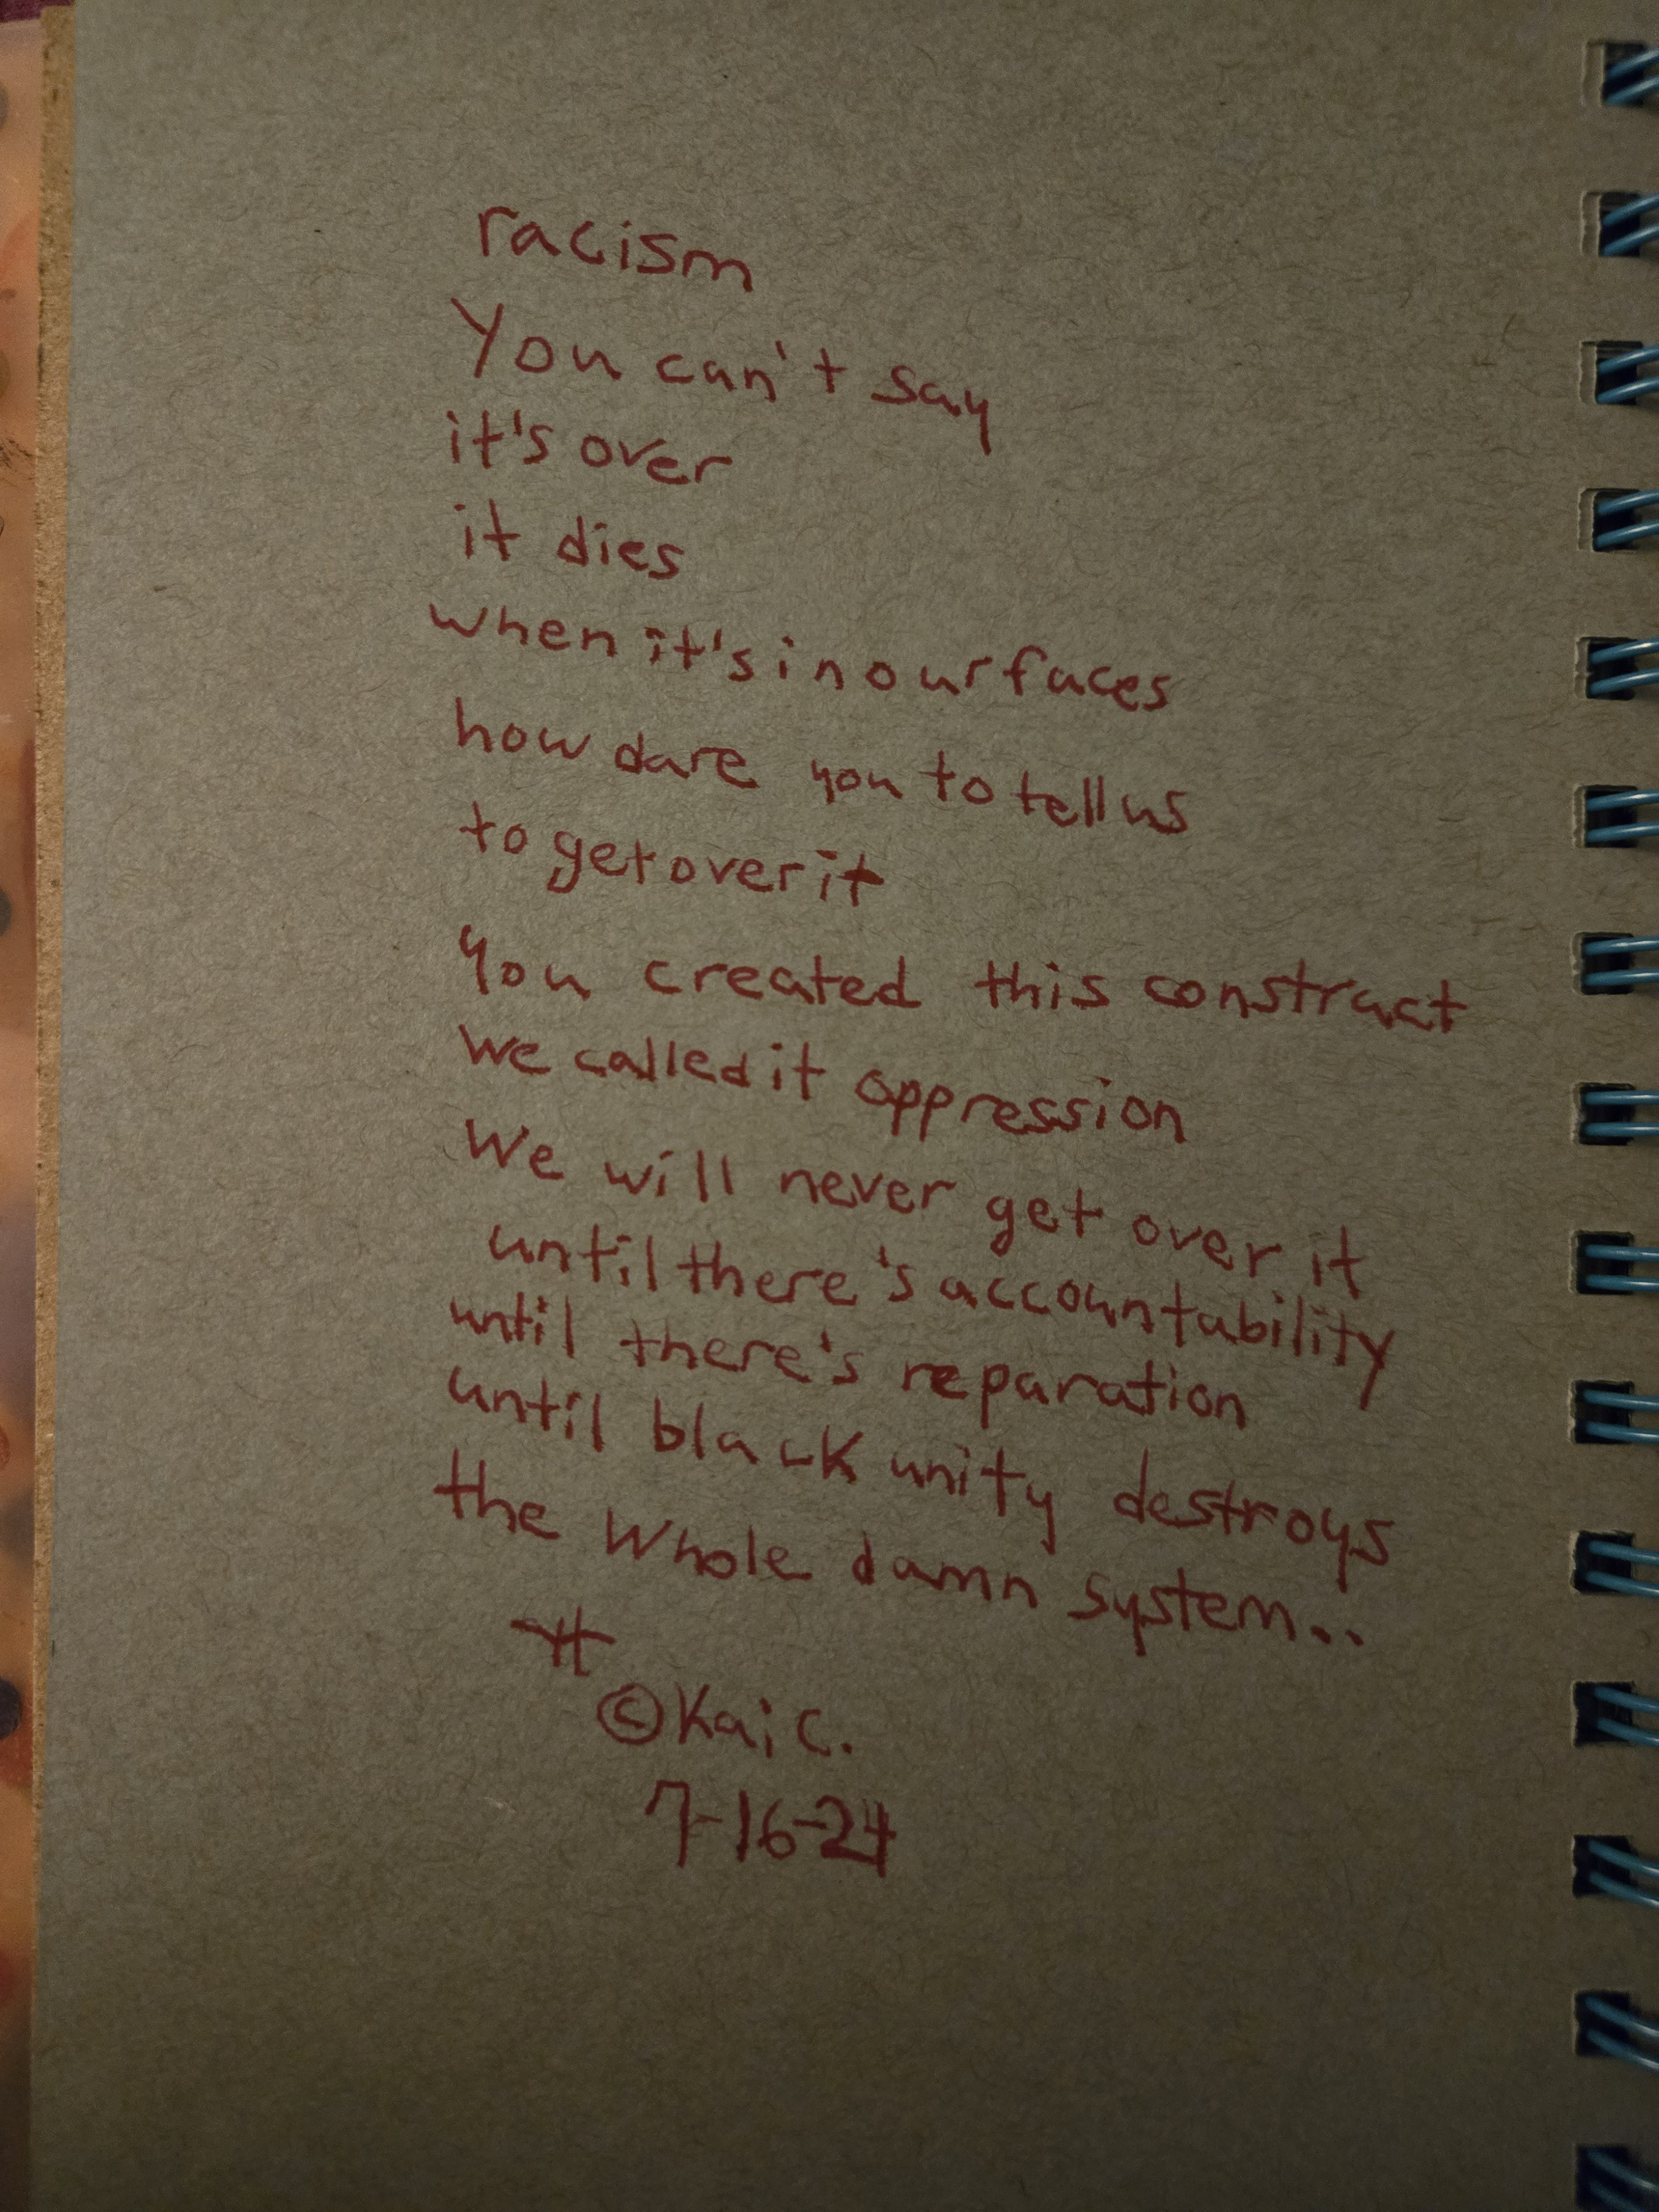 racism
You can't say
it's over
it dies
when it's in our faces
how dare you to tell us
to get over it
You created this construct
we called it oppression
We will never get over it
until there's accountability
until there's reparation
until black unity destroys
the Whole damn system..
©Kai C.
7-16-24